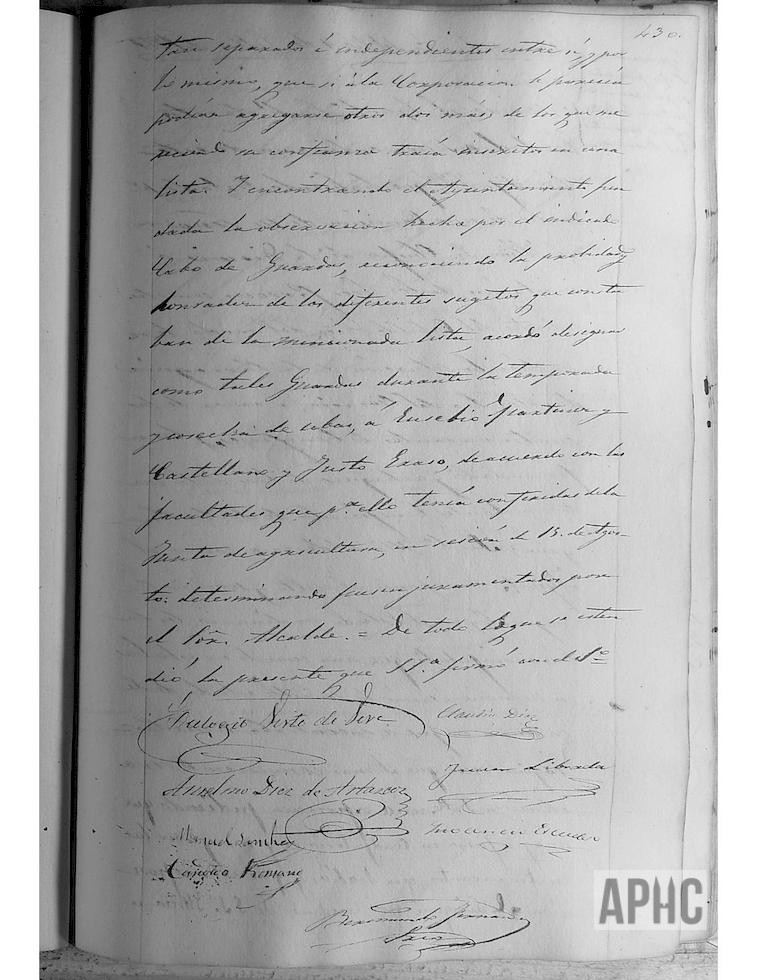 430.
tan separados é independientes entre sí, y por
lo mismo, que si á la Corporacion le parecia
podian agregarse otros dos más, de los que me
reciendo su confianza traía inscritos en una
lista. Y encontrando el Ayuntamiento fun
dada la observacion hecha por el indicado
Cabo de Guardas, reconociendo la probidad y
honradez de los diferentes sugetos que consta
ban de la mencionada lista, acordó designar
como tales Guardas durante la temporada
y cosecha de ubas, á Eusebio Martinez y
Castellano y Justo Eraso, de acuerdo con las
facultades que pª ello tenía conferidas de la
Junta de agricultura, en sesion de 15. de Agos-
to: determinando fuesen juramentados por
el Sor. Alcalde. = De todo lo que se esten
dió la presente que S.Sª. firmó con el Sº
Eulogio Sixto de
Claudio Diez
Anselmo Diez de
Juan
Manuel Sanchez
Inocencio Escudero
Cándido Romano
Fernandez
APHC